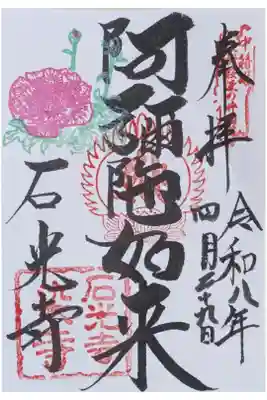 奉拝
令和八年
四月二十九日
阿彌陁如来
石光寺
石光寺